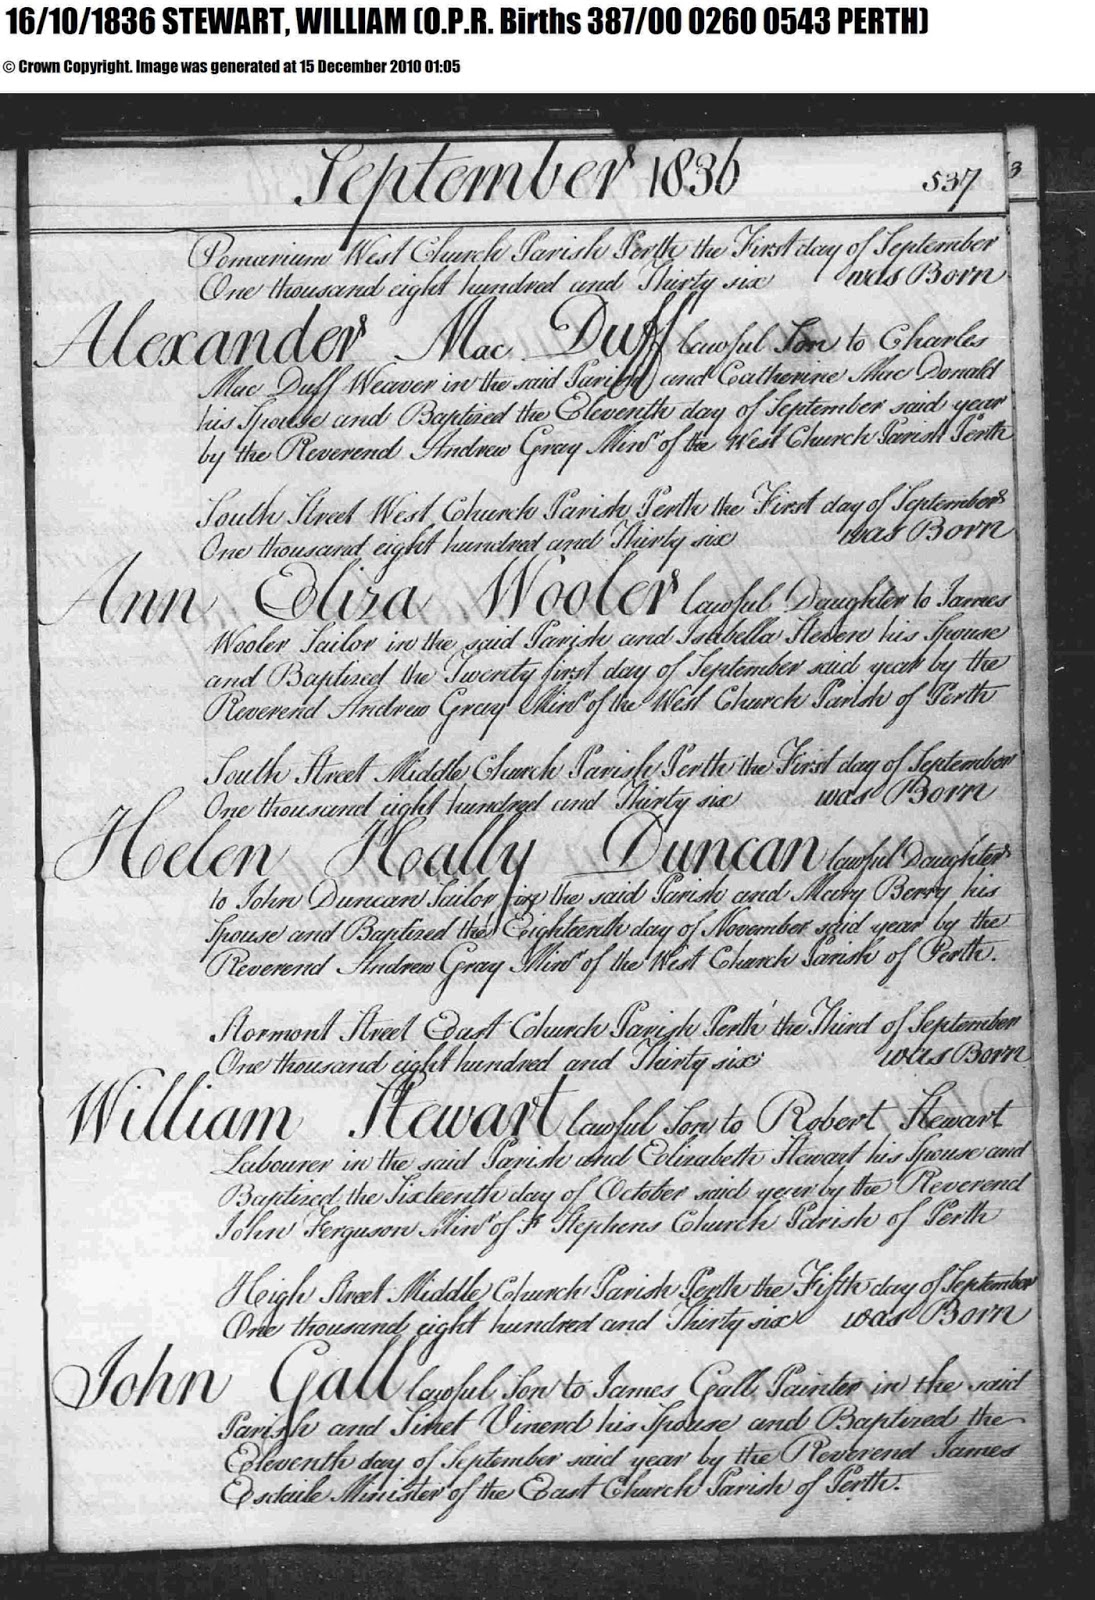 16/10/1836 STEWART, WILLIAM (O.P.R. Births 387/00 0260 0543 PERTH)
© Crown Copyright. Image was generated at 15 December 2010 01:05
September 1836 537 3
Pomarium West Church Parish Perth the First day of September
One thousand eight hundred and Thirty six was Born
Alexander Mac Duff lawful Son to Charles
Mac Duff Weaver in the said Parish and Catherine Mac Donald
his Spouse and Baptized the Eleventh day of September said year
by the Reverend Andrew Gray Minr of the West Church Parish Perth
South Street West Church Parish Perth the First day of September
One thousand eight hundred and Thirty six was Born
Ann Eliza Wooler lawful Daughter to James
Wooler Sailor in the said Parish and Isabella Steven his Spouse
and Baptized the Twenty first day of September said year by the
Reverend Andrew Gray Minr of the West Church Parish of Perth
South Street Middle Church Parish Perth the First day of September
One thousand eight hundred and Thirty six was Born
Helen Hally Duncan lawful Daughter
to John Duncan Sailor in the said Parish and Mary Berry his
Spouse and Baptized the Eighteenth day of November said year by the
Reverend Andrew Gray Minr of the West Church Parish of Perth.
Stormont Street East Church Parish Perth the Third of September
One thousand eight hundred and Thirty six was Born
William Stewart lawful Son to Robert Stewart
Labourer in the said Parish and Elizabeth Stewart his Spouse and
Baptized the Sixteenth day of October said year by the Reverend
John Ferguson Minr of St Stephens Church Parish of Perth
High Street Middle Church Parish Perth the Fifth day of September
One thousand eight hundred and Thirty six was Born
John Gall lawful Son to James Gall Painter in the said
Parish and Jinet Vinend his Spouse and Baptized the
Eleventh day of September said year by the Reverend James
Esdaile Minister of the East Church Parish of Perth.